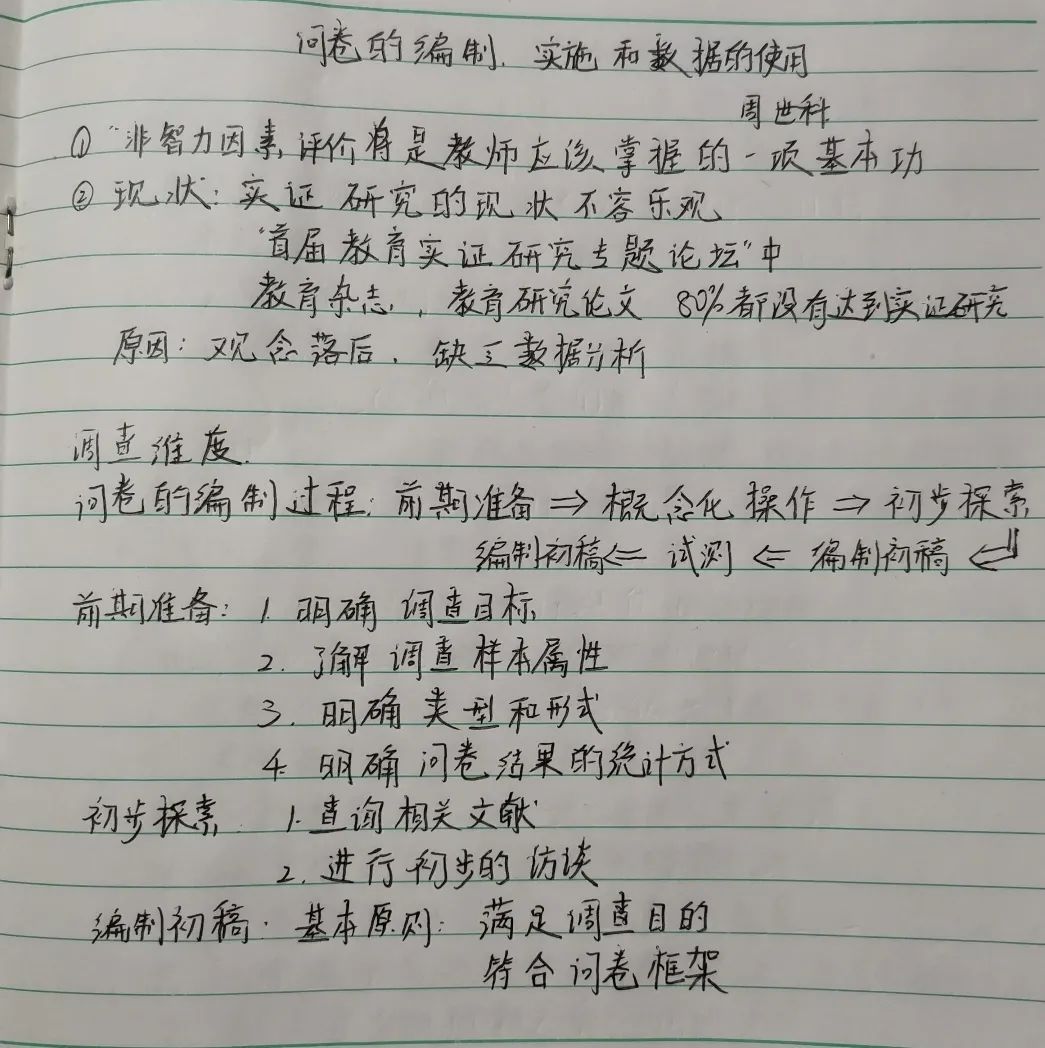 问卷的编制、实施和数据的使用
周世科
① “非智力因素评价将是教师应该掌握的一项基本功
② 现状：实证研究的现状不容乐观
“首届教育实证研究专题论坛”中
教育杂志，教育研究论文 80%都没有达到实证研究
原因：观念落后，缺乏数据分析
调查维度.
问卷的编制过程：前期准备 ⇒ 概念化操作 ⇒ 初步探索
编制初稿 ⇐ 试测 ⇐ 编制初稿 ⇐
前期准备：1. 明确调查目标
2. 了解调查样本属性
3. 明确类型和形式
4. 明确问卷结果的统计方式
初步探索 1. 查询相关文献
2. 进行初步的访谈
编制初稿. 基本原则：满足调查目的
符合问卷框架